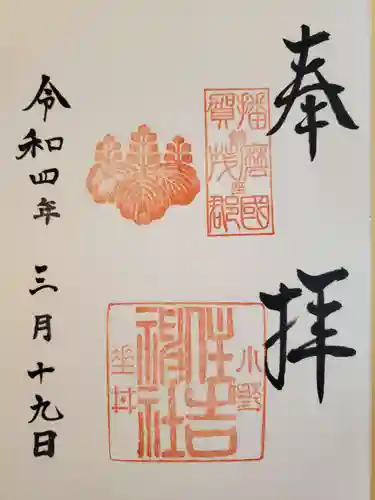 奉拝
播磨国
賀茂郡
住吉
神社
小野
垂井
令和四年 三月十九日